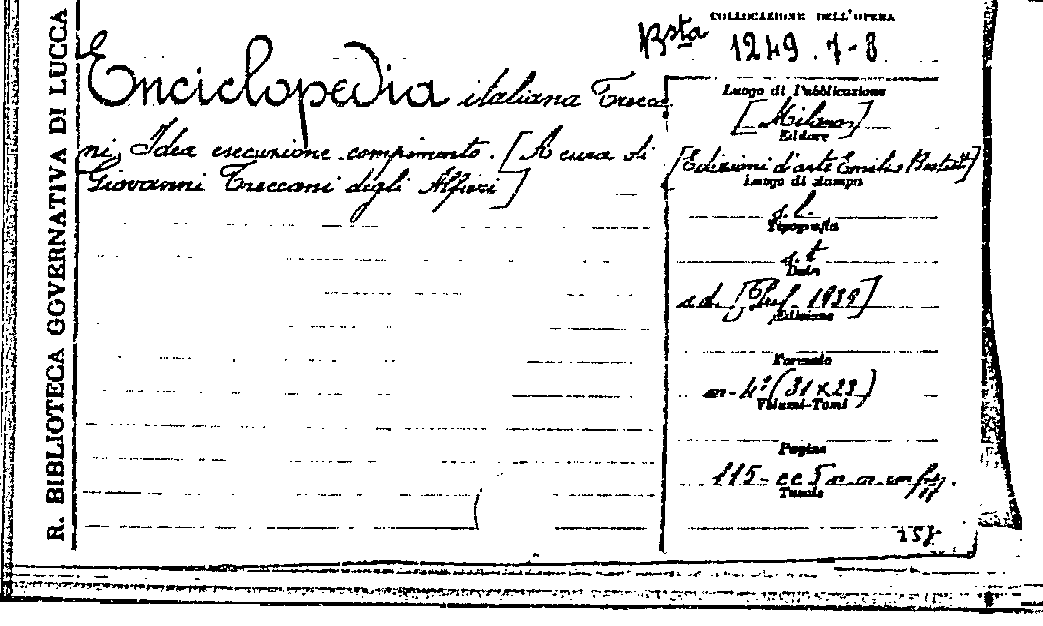 R. BIBLIOTECA GOVERNATIVA DI LUCCA
Enciclopedia italiana Trecca
ni, Idea esecuzione compimento. [A cura di
Giovanni Treccani degli Alfieri]
COLLOCAZIONE DELL'OPERA
Bsta 1249. 7-8
Luogo di Pubblicazione
[Milano]
Editore
[Edizioni d'arte Emilio Bestetti]
Luogo di stampa
s. l.
Tipografia
s. t
Data
s. d. [Pref. 1939]
Edizione
Formato
in-4° (31×23)
Volumi-Tomi
Pagine
115- cc 5 n. n.
Tavole